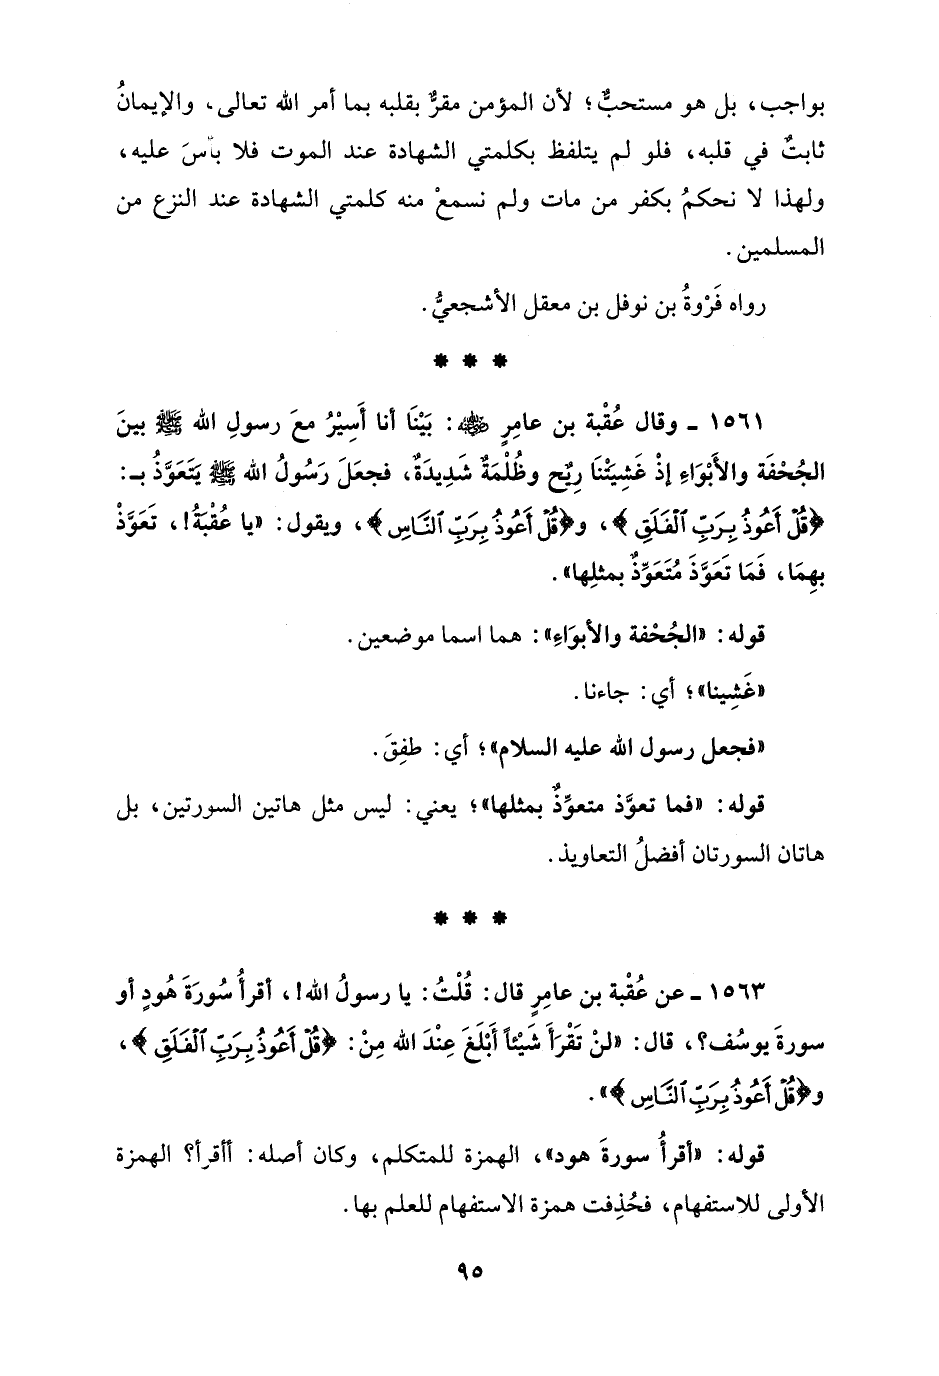 بواجب، بل هو مستحبٌّ؛ لأن المؤمن مقرٌّ بقلبه بما أمر الله تعالى، والإيمانُ
ثابتٌ في قلبه، فلو لم يتلفظ بكلمتي الشهادة عند الموت فلا بأسَ عليه،
ولهذا لا نحكمُ بكفر من مات ولم نسمعْ منه كلمتي الشهادة عند النزع من
المسلمين.
رواه فَرْوةُ بن نوفل بن معقل الأشجعيُّ.
* * *
١٥٦١ ـ وقال عُقْبة بن عامرٍ رضي الله عنه: بَيْنَا أنا أَسِيْرُ معَ رسولِ الله ﷺ بينَ
الجُحْفَة والأَبْوَاءِ إذْ غَشِيَتْنَا رِيْح وظُلْمَةٌ شَدِيدَةٌ، فجعَلَ رَسُولُ الله ﷺ يَتَعَوَّذُ بـ:
﴿قُلْ أَعُوذُ بِرَبِّ ٱلْفَلَقِ﴾، و﴿قُلْ أَعُوذُ بِرَبِّ ٱلنَّاسِ﴾، ويقول: «يا عُقْبَةُ!، تَعَوَّذْ
بهِمَا، فَمَا تَعَوَّذَ مُتَعَوِّذٌ بمثلِها».
قوله: «الجُحْفة والأبوَاءِ»: هما اسما موضعين.
«غَشِينا»؛ أي: جاءنا.
«فجعل رسول الله عليه السلام»؛ أي: طفِقَ.
قوله: «فما تعوَّذ متعوِّذٌ بمثلها»؛ يعني: ليس مثل هاتين السورتين، بل
هاتان السورتان أفضلُ التعاويذ.
* * *
١٥٦٣ ـ عن عُقْبة بن عامرٍ قال: قُلْتُ: يا رسولُ الله!، أقرأُ سُورَةَ هُودٍ أو
سورةَ يوسُف؟، قال: «لنْ تَقْرَأَ شَيْئاً أَبْلَغَ عِنْدَ الله مِنْ: ﴿قُلْ أَعُوذُ بِرَبِّ ٱلْفَلَقِ﴾،
و﴿قُلْ أَعُوذُ بِرَبِّ ٱلنَّاسِ﴾».
قوله: «أقرأُ سورةَ هود»، الهمزة للمتكلم، وكان أصله: أأقرأ؟ الهمزة
الأولى للاستفهام، فحُذِفت همزة الاستفهام للعلم بها.
٩٥